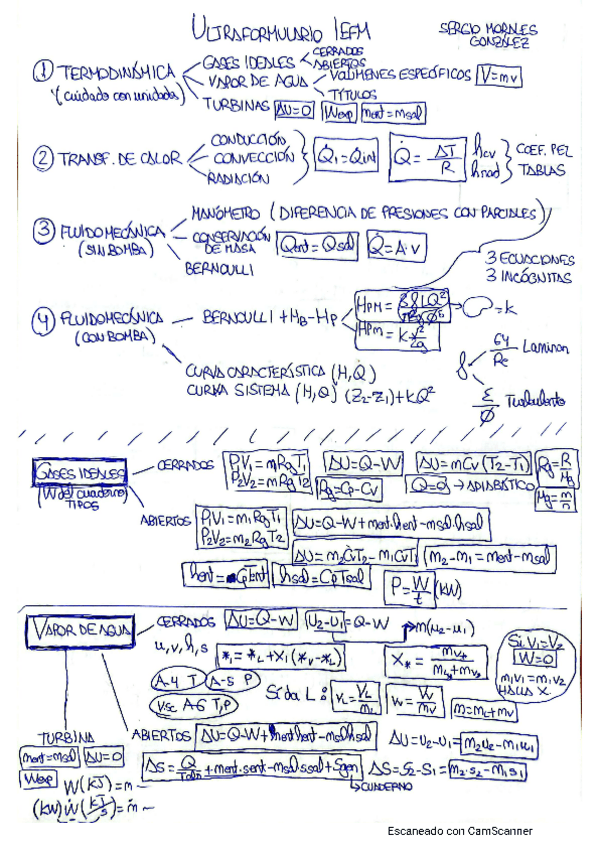 ULTRAFORMULARIO IEFM
SERGIO MORALES
GONZÁLEZ
① TERMODINÁMICA
(cuidado con unidades)
GASES IDEALES
CERRADOS
ABIERTOS
VAPOR DE AGUA
VOLÚMENES ESPECÍFICOS V=mv
TÍTULOS
TURBINAS ΔU=0 Wexp ment=msal
② TRANSF. DE CALOR
CONDUCCIÓN
CONVECCIÓN
RADIACIÓN
Q̇1=Q̇int
Q̇ = ΔT/R
hcv
hrad
COEF. PEL
TABLAS
③ FLUIDOMECÁNICA
(SIN BOMBA)
MANÓMETRO (DIFERENCIA DE PRESIONES CON PARCIALES)
CONSERVACIÓN
DE MASA
Qent = Qsal
Q̇ = A·v
BERNOULLI
3 ECUACIONES
3 INCÓGNITAS
④ FLUIDOMECÁNICA
(CON BOMBA)
BERNOULLI + HB-HP
HPM = 8fLQ²/π²gØ⁵
=k
HPm = k v²/2g
f
64/Re Laminar
ε/Ø Turbulento
CURVA CARACTERÍSTICA (H,Q)
CURVA SISTEMA (H,Q) (Z2-Z1)+KQ²
GASES IDEALES
(W del cuaderno)
TIPOS
CERRADOS
P1V1 = mRgT1
P2V2 = mRgT2
ΔU=Q-W
ΔU=mCv(T2-T1)
Rg=R/Mg
Rg=Cp-Cv
Q=0 → ADIABÁTICO
Mg=m/n
ABIERTOS
P1V1 = m1RgT1
P2V2 = m2RgT2
ΔU=Q-W+ment.hent-msal.hsal
ΔU = m2CvT2-m1CvT1
m2-m1=ment-msal
hent=CpTent
hsal=CpTsal
P=W/t (KW)
VAPOR DE AGUA
CERRADOS ΔU=Q-W
U2-U1=Q-W
m(u2-u1)
u,v,h,s
*1 = *L+X1(*v-*L)
X* = mv*/mL*+mv*
Si V1=V2
W=0
m1v1=m1v2
HALLAS X
A-4 T
A-5 P
V.sc A-6 T,P
Si da L:
vL=VL/mL
vv=Vv/mv
m=mL+mv
TURBINA
ment=msal
ΔU=0
Wexp
W(KJ)=m
(KW) Ẇ(KJ/s)=ṁ
ABIERTOS ΔU=Q-W+ment.hent-msal.hsal
ΔU=U2-U1=m2u2-m1u1
ΔS=Q/Talr+ment.sent-msal.ssal+Sgen
CUADERNO
ΔS=S2-S1=m2.s2-m1s1
Escaneado con CamScanner